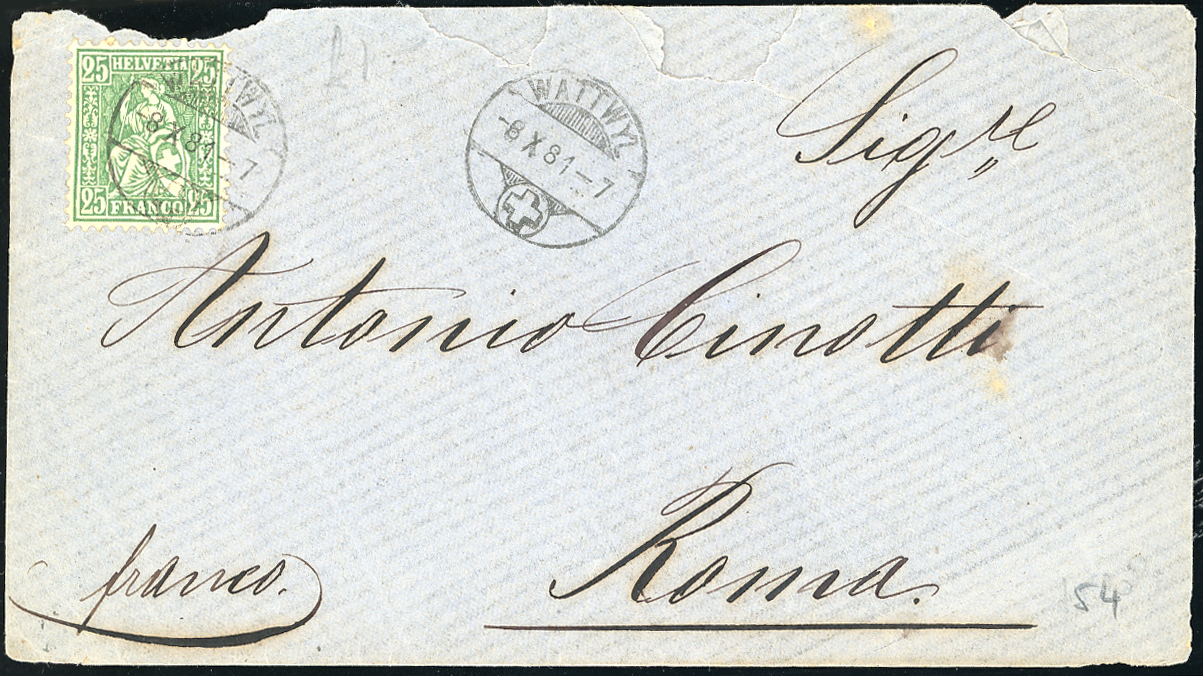 25 HELVETIA 25
25 FRANCO 25
WATTWYL
-8 X 81-7
WATTWYL
-8 X 81-7
Sigre
Antonio Cinotti
Roma.
franco.
54